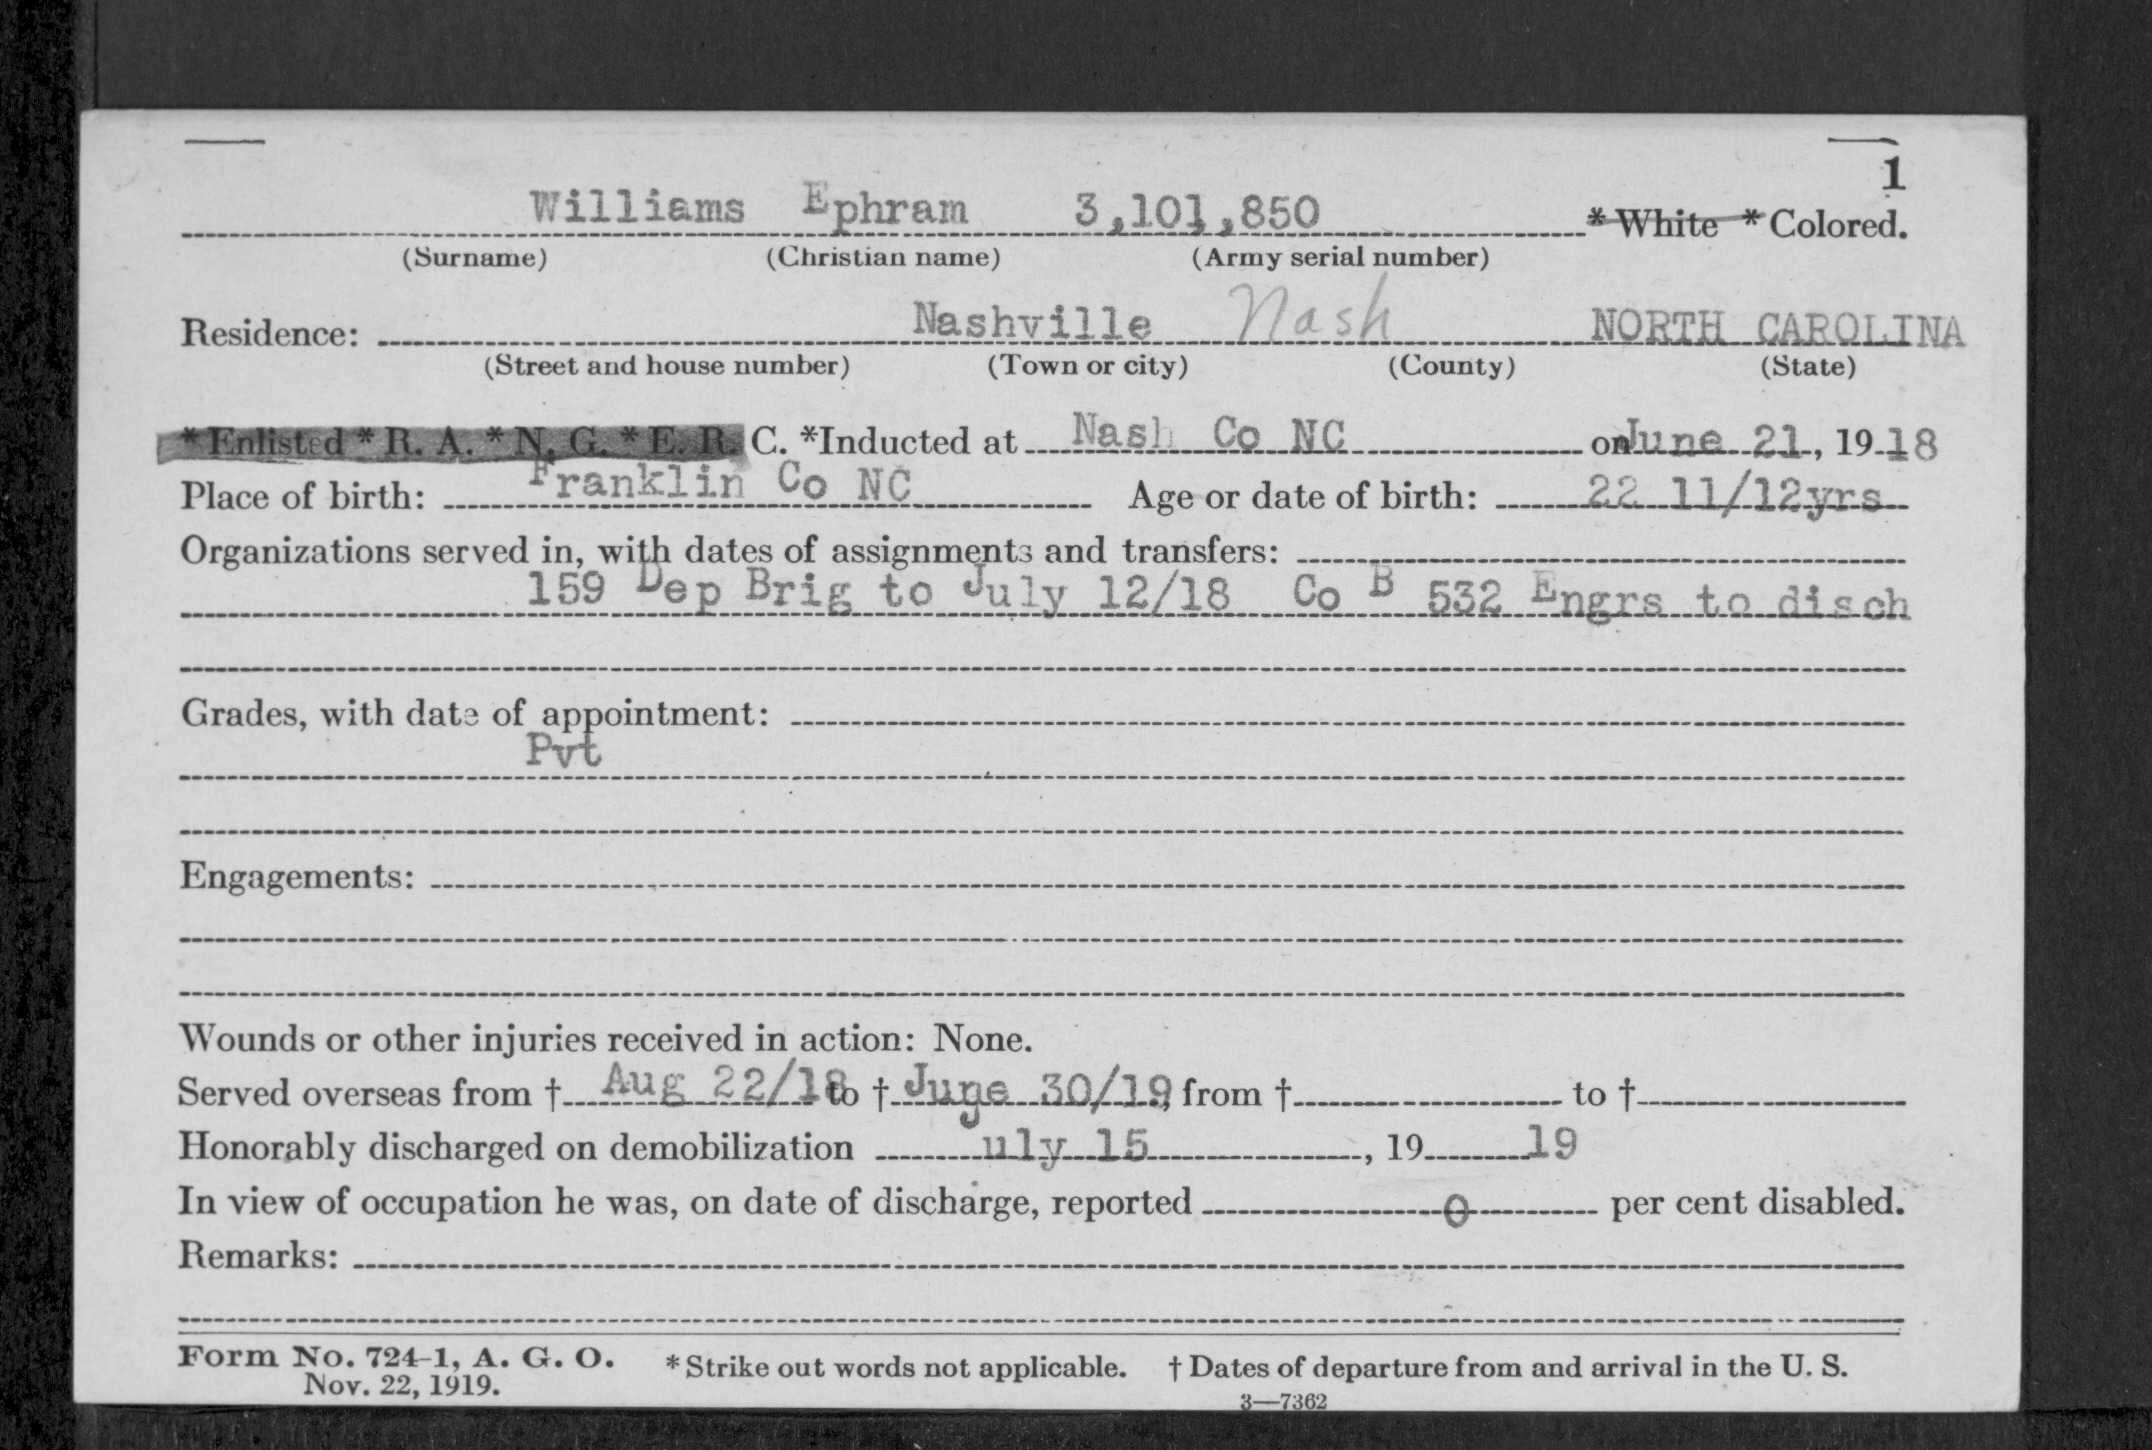 1
Williams Ephram 3,101,850 * White * Colored.
(Surname) (Christian name) (Army serial number)
Residence: Nashville Nash NORTH CAROLINA
(Street and house number) (Town or city) (County) (State)
* Enlisted * R. A. * N. G. * E. R. C. *Inducted at Nash Co NC on June 21, 1918
Place of birth: Franklin Co NC Age or date of birth: 22 11/12yrs
Organizations served in, with dates of assignments and transfers:
159 Dep Brig to July 12/18 Co B 532 Engrs to disch
Grades, with date of appointment:
Pvt
Engagements:
Wounds or other injuries received in action: None.
Served overseas from † Aug 22/18 to † June 30/19, from † to †
Honorably discharged on demobilization July 15, 19 19
In view of occupation he was, on date of discharge, reported 0 per cent disabled.
Remarks:
Form No. 724-1, A. G. O. * Strike out words not applicable. † Dates of departure from and arrival in the U. S.
Nov. 22, 1919.
3—7362